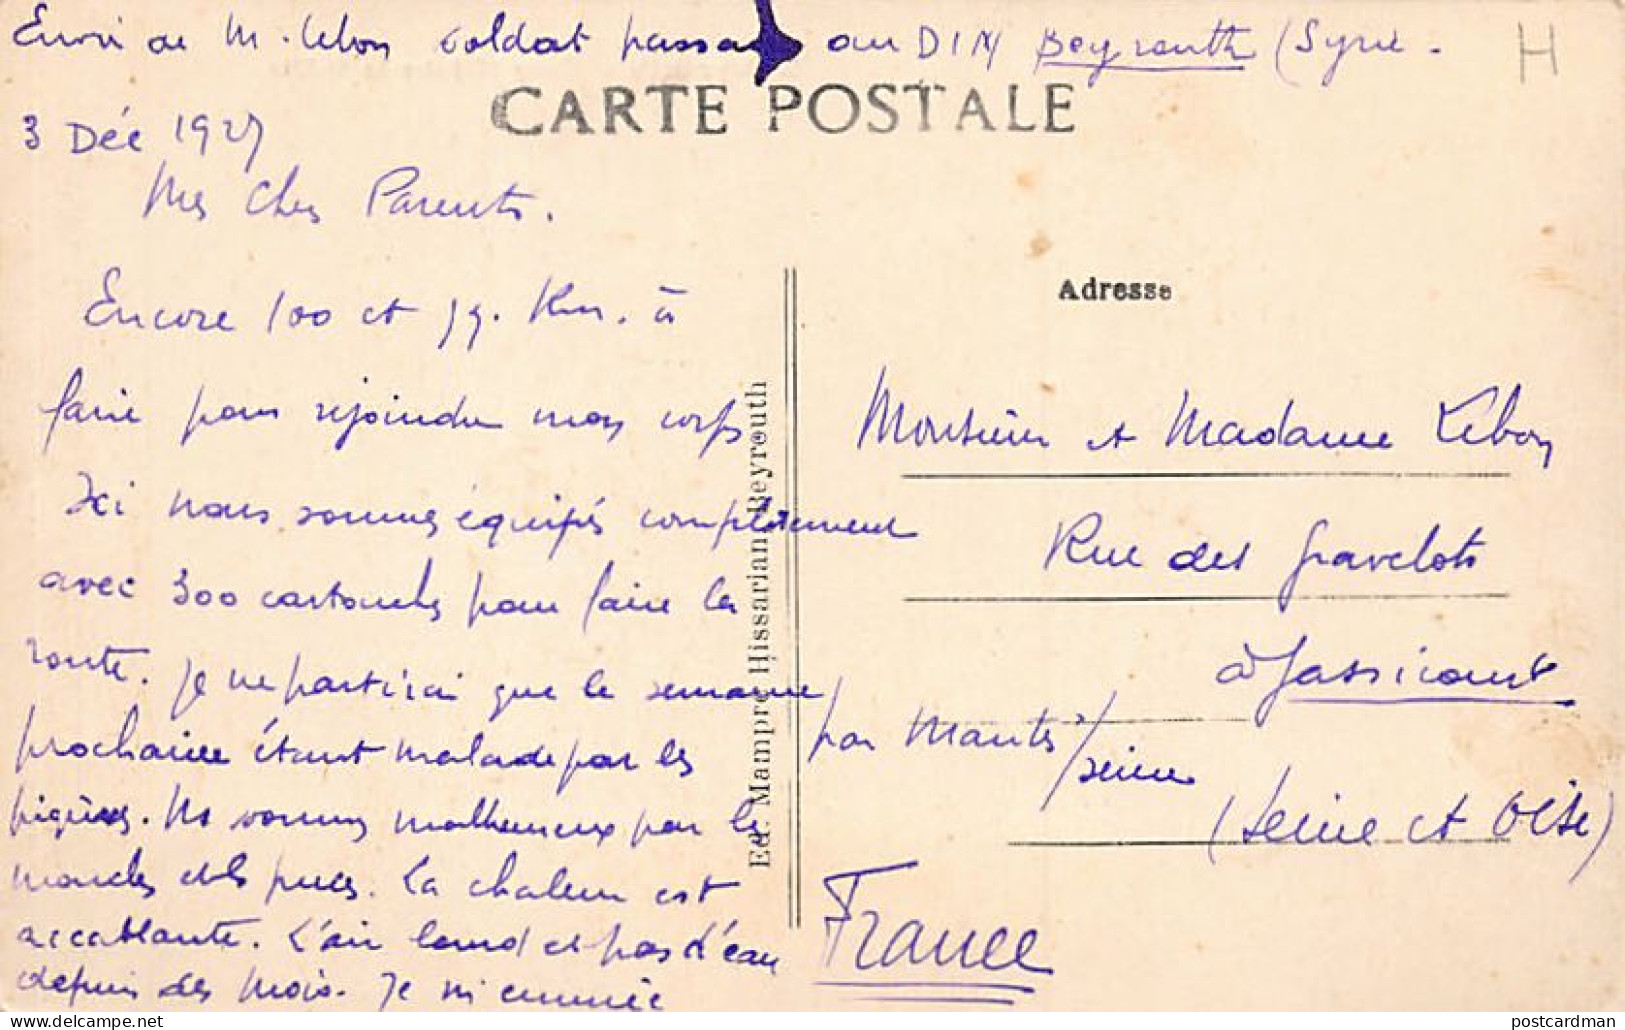 Envoi de M. Lebon soldat passager au DIM Beyrouth (Syrie.
H
CARTE POSTALE
3 Déc 1927
Mes Chers Parents.
Encore 100 et Km. à
faire pour rejoindre mon corps
Ici nous sommes équipés complètement
avec 300 cartouches pour faire la
route. je ne partirai que la semaine
prochaine étant malade par les
piqûres. Ns sommes malheureux par les
mouches et les puces. La chaleur est
accablante. L'air lourd et pas d'eau
depuis des mois. Je m'ennuie
Ed. Mampré Hissarian Beyrouth
Adresse
Monsieur et Madame Lebon
Rue des Gravelots
à Jassicourt
par Mantes/seine
(Seine et Oise)
France
postcardman